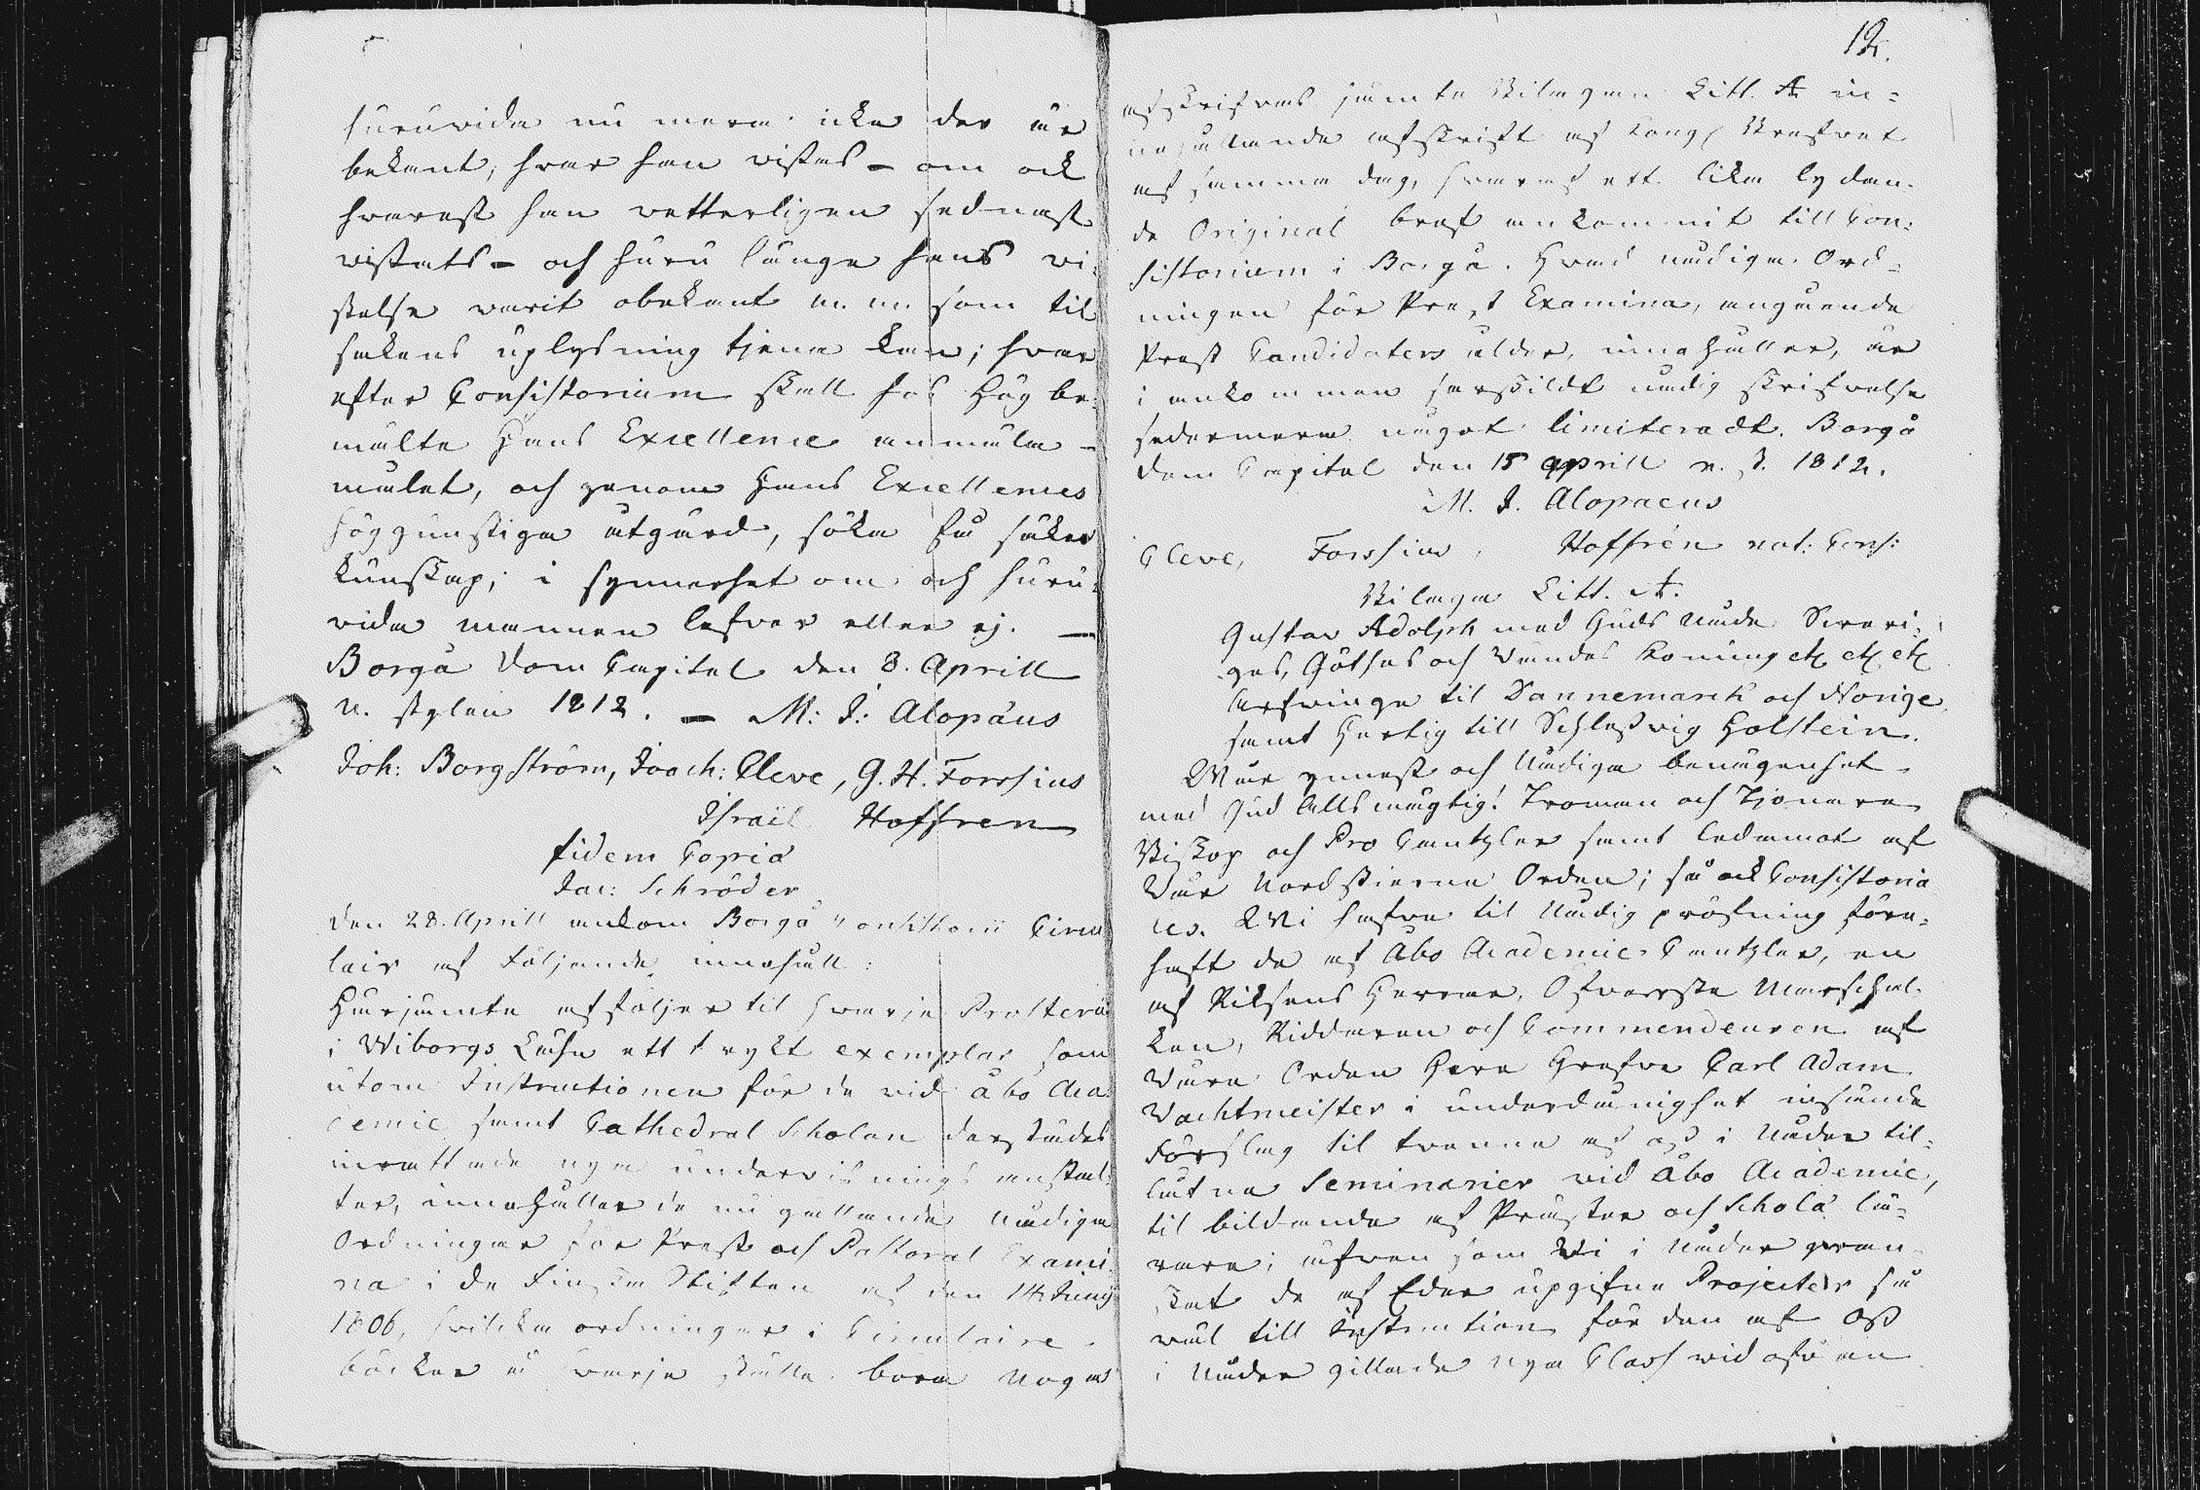 huruvida nu mera icke der är
bekant, hvar han vistas – om ock
hvarest han vetterligen sednast
vistats – och huru länge hans vi-
stelse varit obekant m. m. som til
sakens uplysning tjena kan; hvar
efter Consistorium skall hos Högbe-
mälte Hans Excellence anmäla –
målet, och genom Hans Excellences
höggunstiga åtgärd, söka få säker
kunskap, i synnerhet om och huru-
vida mannen lefver eller ej. –
Borgå Dom Capitel den 8. Aprill
n. stylen 1812. – M: J: Alopäus
Joh: Borgström, Joach: Cleve, G. H. Forssius
Israël Hoffren
fidem Copiä
Jac: Schröder
Den 28. Aprill ankom Borgå Consistorii Circu
lair af följande innehåll:
Härjämte affäljer til hwarje Prosteri
i Wiborgs Lähn ett trykt exemplar, som
utom Instructionen för de vid Åbo Aca
demie samt Cathedral Scholan derstädes
inrättade nya undervisnings anstal-
ter, innehåller de nu gällande Nådiga
Ordningar för Prest och Pastoral Exami
na i de Finska Stiften af den 14 Junij
1806, hvilka ordningar i Circulaire
böcker å hwarje ställe böra noga
12.
afskrifvas jämte Bilagan Litt. A in-
nehållande afskrift af Kongl Brefvet
af samma dag, hvaraf ett lika lydan-
de Original bref ankommit till Con-
sistorium i Borgå. Hvad nådiga Ord-
ningen för Prest Examina, angående
Prest Candidaters ålder, innehåller, är
i ankommen särskildt nådig skrifvelse
sedermera något limiteradt. Borgå
Dom Capitel den 15 aprill n. S. 1812.
M. J. Alopaeus
Cleve, Forssius, Hoffrén not: Cons:
Bilaga Litt. A.
Gustav Adolph med Guds Nåde Sweri-
ges, Göthes och Wendes Konung etc etc etc
Arfvinge til Dannemark och Norige
samt Hertig till Schleswig Holstein.
Wår ynnest och Nådiga benägenhet
med Gud Allsmägtig! Troman och Tjenare
Biskop och Pro Cantzler samt Ledamot af
Wår Nordstjerne Orden; så ock Consistoria
les. Wi hafve til Nådig pröfning före-
haft de af Åbo Academie Cantzler, en
af Riksens Herrar, Öfverste Marschal-
ken, Riddaren och Commendeuren af
Våra Orden Herr Grefve Carl Adam
Wachtmeister i underdånighet insände
Förslag til tvenne af oss i Nåder til-
låtne Seminarier vid Åbo Academie,
til bildande af Präster och Scholä lä-
rare; äfven som Wi i Nåder gran-
skat de af Eder upgifne Projecter så
väl till Instruction för den af Oss
i Nåder gillade nya Class vid ofv an